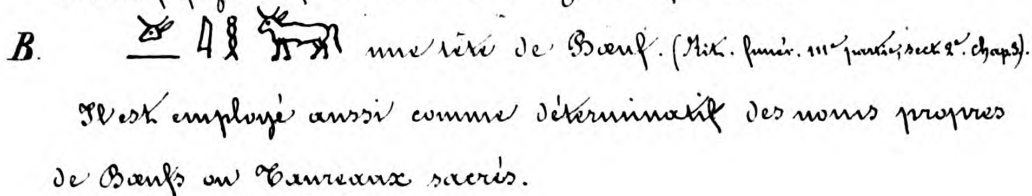 B. une tête de Bœuf. (Rit. funér. IIIe partie, sect 2e. chap 3).
Il est employé aussi comme déterminatif des noms propres
de Bœufs ou Taureaux sacrés.